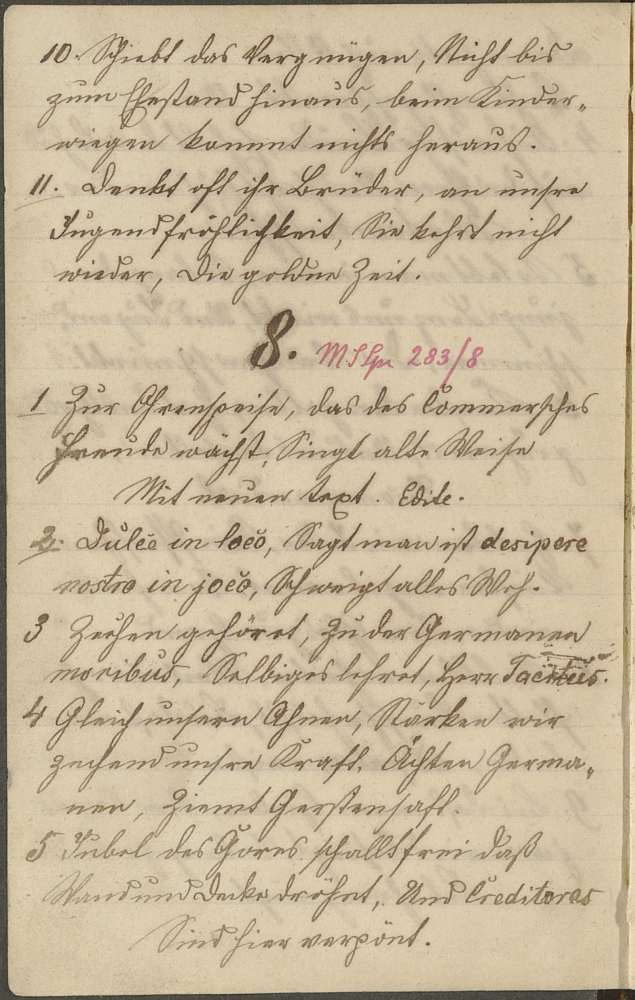 10. Schiebt das Vergnügen, Nicht bis
zum Ehestand hinaus, beim Kinder-
wiegen kommt nichts heraus.
11. Denkt oft ihr Brüder, an unsre
Jugendfröhlichkeit, Sie kehrt nicht
wieder, die goldne Zeit.
8. MS Lpr 283/8
1 Zur Ohrenspeise, das des Commersches
Freude wächst, Singt alte Weise
Mit neuen text. Edite.
2. Dulce in loco, Sagt man ist desipere
nostro in joco, Schweigt alles Weh.
3 Zechen gehöret, zu der Germanen
moribus, Selbiges lehret, Herr Tacitus.
4 Gleich unsern Ahnen, Stärken wir
zechend unsre Kraft. Ächten Germa-
nen, Ziemt Gerstensaft.
5 Jubel des Chores schallt frei daß
Wand und Decke dröhnt, Und Creditores
Sind hier verpönt.